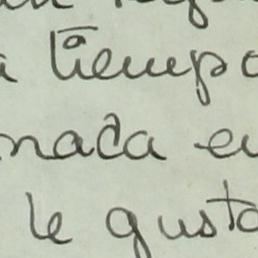 a tiempo
nada en
le gusta